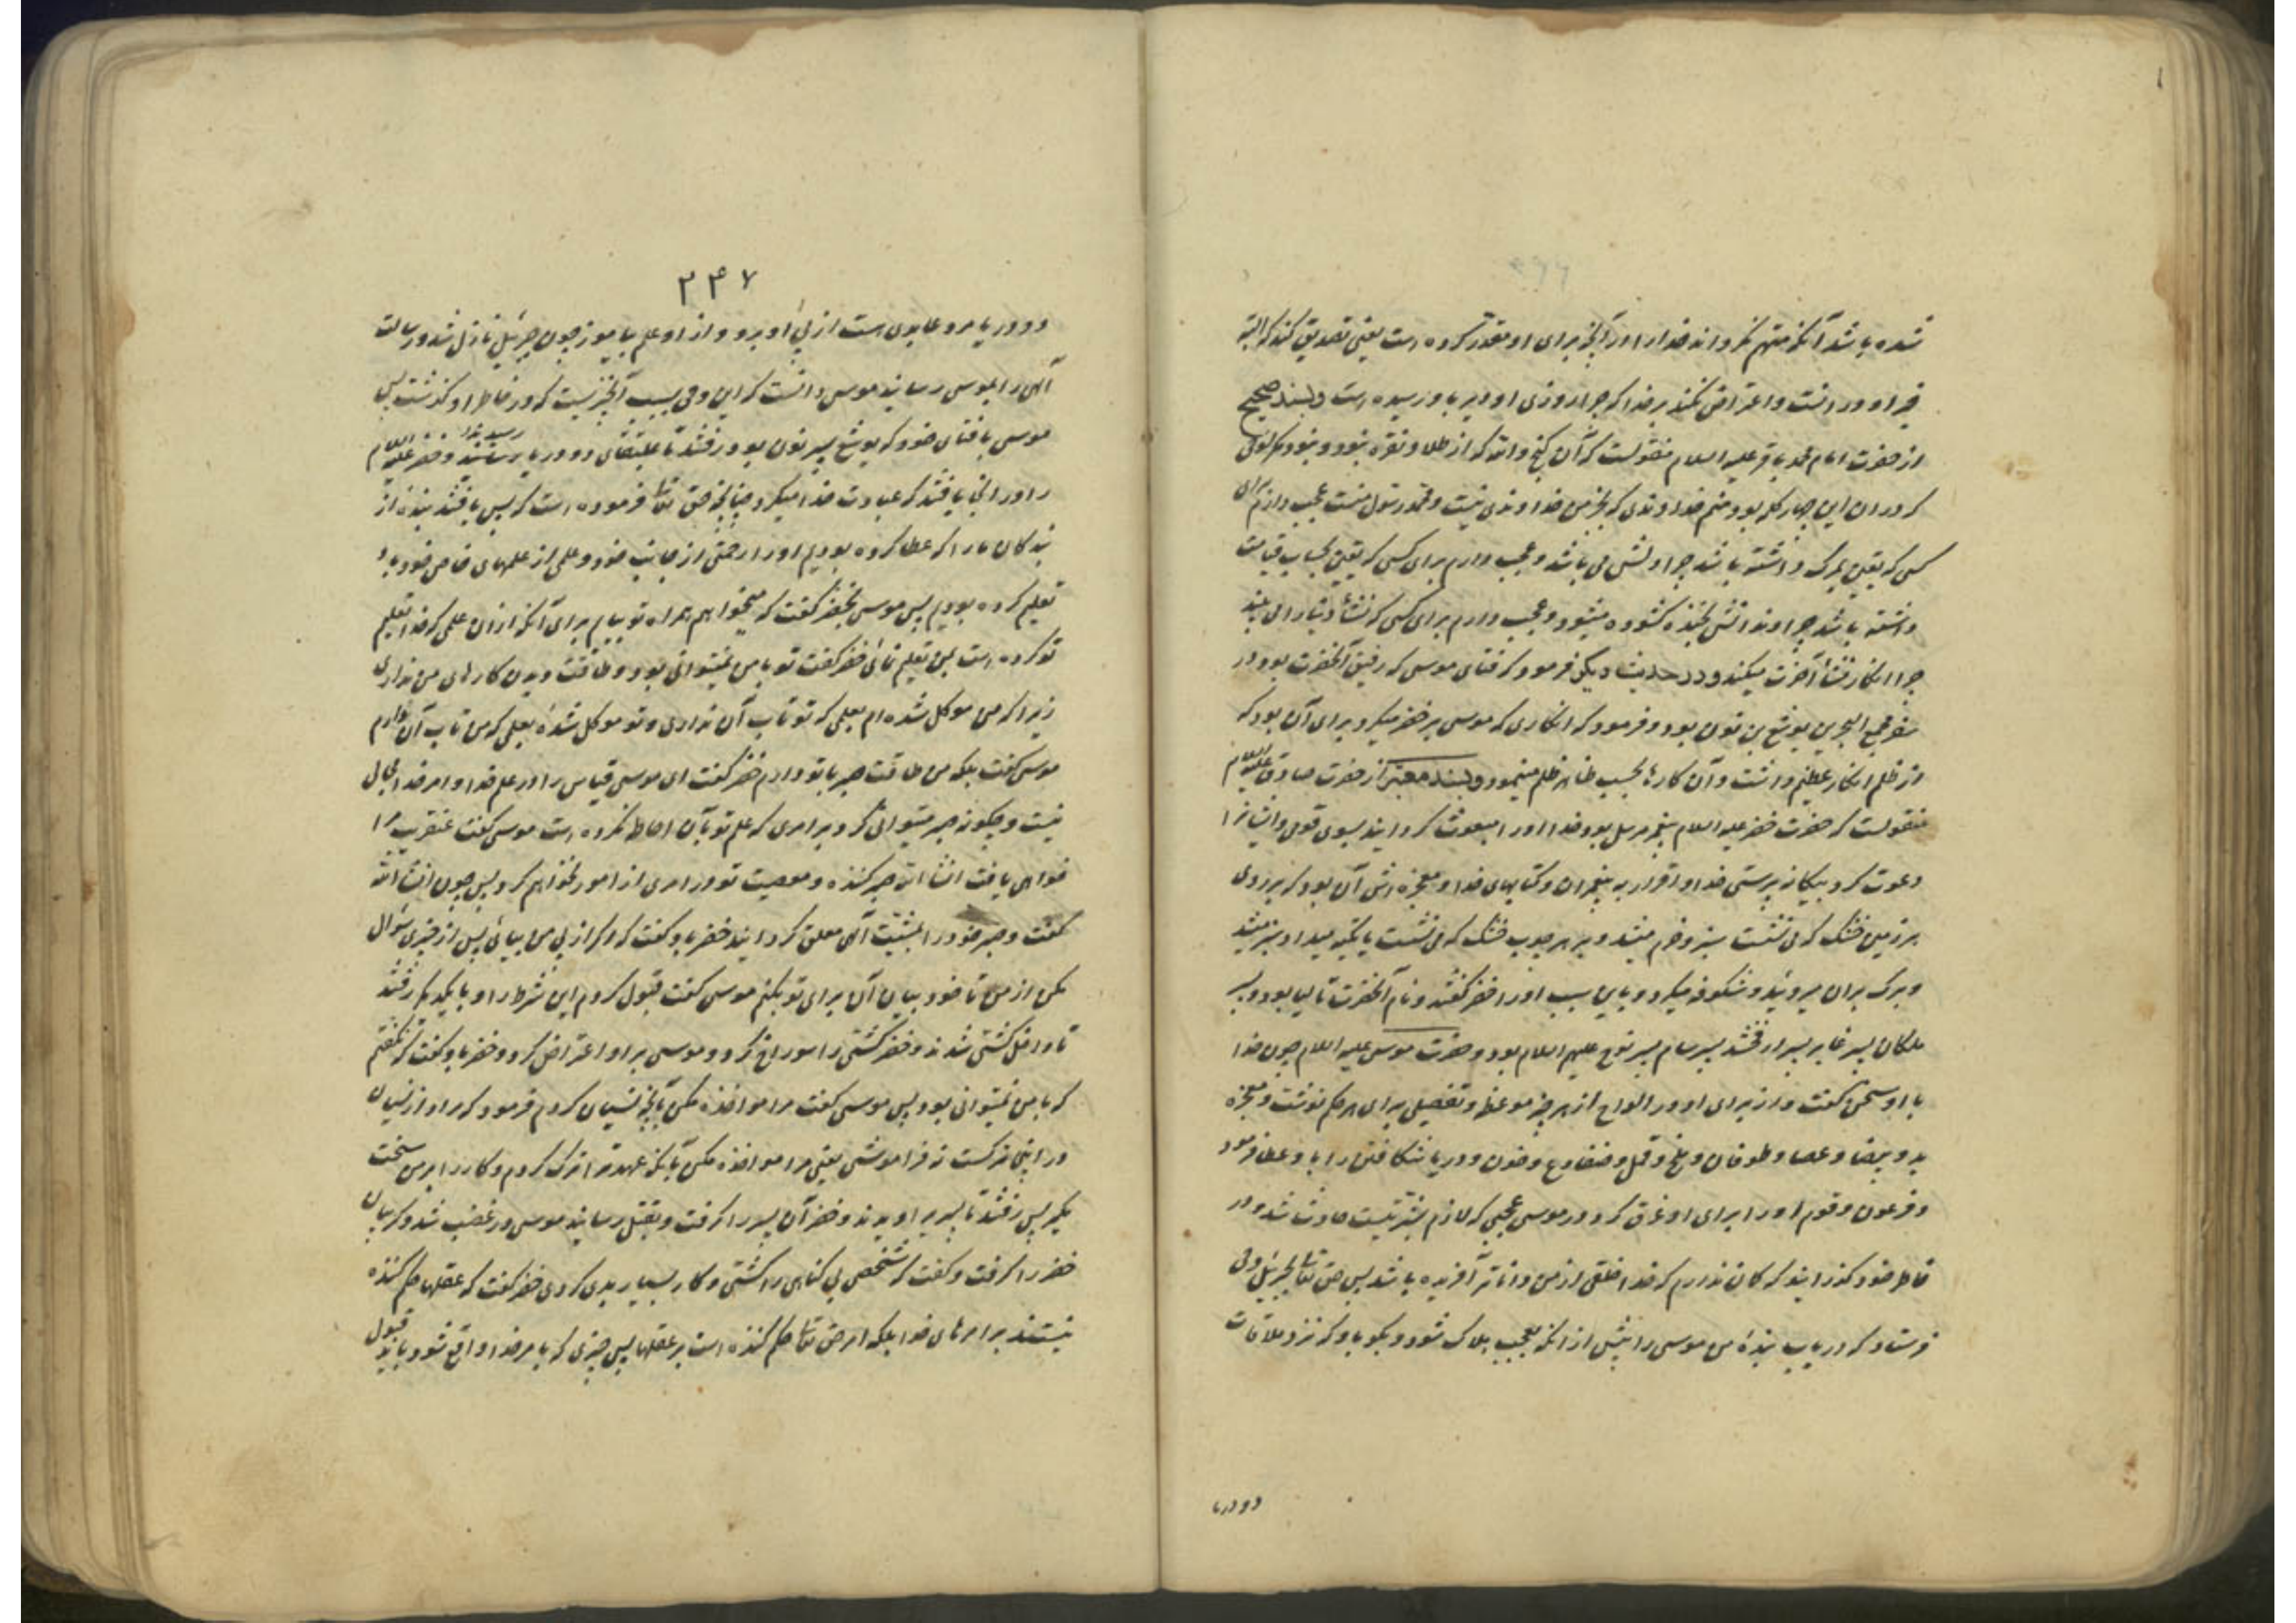 شده باشد آنکه متهم نگرداند خدا را در آنچه برای او مقدر کرده است یعنی تصدیق کند که البته
خیر او در آنست و اعتراض نکند بر خدا که چرا روزی او دیر باو رسیده است و بسند صحیح
از حضرت امام محمد باقر علیه السلام منقولست که آن گنج والله که از طلا و نقره نبود و نبود مگر لوحی
که در آن این چهار کلمه بود منم خداوندی که بجز من خداوندی نیست و محمد رسول منست عجب دارم برای
کسی که یقین بمرگ داشته باشد چرا دلش می باشد و عجب دارم برای کسی که یقین بحساب قیامت
داشته باشد چرا دندانش بخنده گشوده میشود و عجب دارم برای کسی که نشأه دنیا را می بیند
چرا انکار نشأه آخرت میکند و در حدیث دیگر فرمود که فتای موسی که رفیق آنحضرت بود در
سفر مجمع البحرین یوشع بن نون بود و فرمود که انکاری که موسی بر خضر میکرد برای آن بود که
از ظلم انکار عظیم داشت و آن کارها بحسب ظاهر ظلم مینمود و بسند معتبر از حضرت صادق علیه السلام
منقولست که حضرت خضر علیه السلام پیغمبر مرسل بود خدا او را مبعوث گردانید بسوی قومی و ایشانرا
دعوت کرد بیگانه پرستی خدا و اقرار به پیغمبران و کتابهای خدا و معجزه اش آن بود که بر روی
هر زمین خشک که می نشست سبز و خرم میشد و بر هر چوب خشک که می نشست یا تکیه میداد سبز میشد
و برگ بران میروئید و شکوفه میکرد و باین سبب او را خضر گفتند و نام آنحضرت تالیا بود و پسر
ملکان پسر غابر پسر ارفخشد پسر سام پسر نوح علیهم السلام بود و حضرت موسی علیه السلام چون خدا
با او سخن گفت و از برای او در الواح از هر چیز موعظه و تفصیلی برای هر حکم نوشت و معجزه
ید و بیضا و عصا و طوفان و ملخ و قمل و ضفادع و خون و دریا شکافتن را باو عطا فرمود
و فرعون و قوم او را برای او غرق کرد در موسی عجبی که لازم بشریتست حادث شد و در
خاطر خود گذرانید که گمان ندارم که خدا خلقی از من داناتر آفریده باشد پس حق تعالی بجبرئیل وحی
فرستاد که دریاب بنده من موسی را پیش از آنکه بعجب هلاک شود و بگو باو که نزد ملاقات
دو دریا
۲۴۷
دو دریا مرد عابدی است از پی او برو و از او علم بیاموز چون جبرئیل نازل شد و رسالت
آلهی را بموسی رسانید موسی دانست که این وحی بسبب آنچیزیست که در خاطر او گذشت پس
موسی با فتای خود که یوشع پسر نون بود رفتند تا بملتقای دو دریا رسیدند و خضر علیه السلام
را در آنجا یافتند که عبادت خدا میکرد چنانچه حق تعالی فرموده است که پس یافتند بنده از
بندگان ما را که عطا کرده بودیم او را رحمتی از جانب خود و علمی از علمهای خاص خود باو
تعلیم کرده بودیم پس موسی بخضر گفت که میخواهم همراه تو بیایم برای آنکه از آن علمی که خدا تعلیم
تو کرده است بمن تعلیم نمائی خضر گفت تو با من نمیتوانی بود و طاقت دیدن کارهای من نداری
زیرا که من موکل شده ام بعلمی که تو تاب آن نداری و تو موکل شده بعلمی که من تاب آن ندارم
موسی گفت بلکه من طاقت صبر با تو دارم خضر گفت ای موسی قیاس را در علم خدا و امر خدا مجال
نیست و چگونه صبر میتوانی کرد بر امری که علم تو بآن احاطه نکرده است موسی گفت عنقریب مرا
خواهی یافت انشا الله صبر کننده و معصیت تو در امری از امور نخواهم کرد پس چون انشا الله
گفت و صبر خود را بمشیت آلهی معلق گردانید خضر باو گفت که اگر از پی من بیائی پس از چیزی سؤال
مکن از من تا خود بیان آن برای تو بکنم موسی گفت قبول کردم این شرط را و با یکدیگر رفتند
تا داخل کشتی شدند و خضر کشتی را سوراخ کرد و موسی بر او اعتراض کرد و خضر باو گفت که نگفتم
که با من نمیتوانی بود پس موسی گفت مرا مواخذه مکن بآنچه نسیان کردم فرمود که مراد از نسیان
در اینجا ترکست نه فراموشی یعنی مرا مواخذه مکن بآنکه عهد ترا ترک کردم و کار را بر من سخت
مگیر پس رفتند تا پسری را دیدند و خضر آن پسر را گرفت و بقتل رسانید موسی در غضب شد و گریبان
خضر را گرفت و گفت که شخصی بی گناهی را کشتی و کار بسیار بدی کردی خضر گفت که عقلها حکم کننده
نیستند بر امرهای خدا بلکه امر حق تعالی حکم کننده است بر عقلها پس چیزی که بامر خدا واقع شود باید قبول